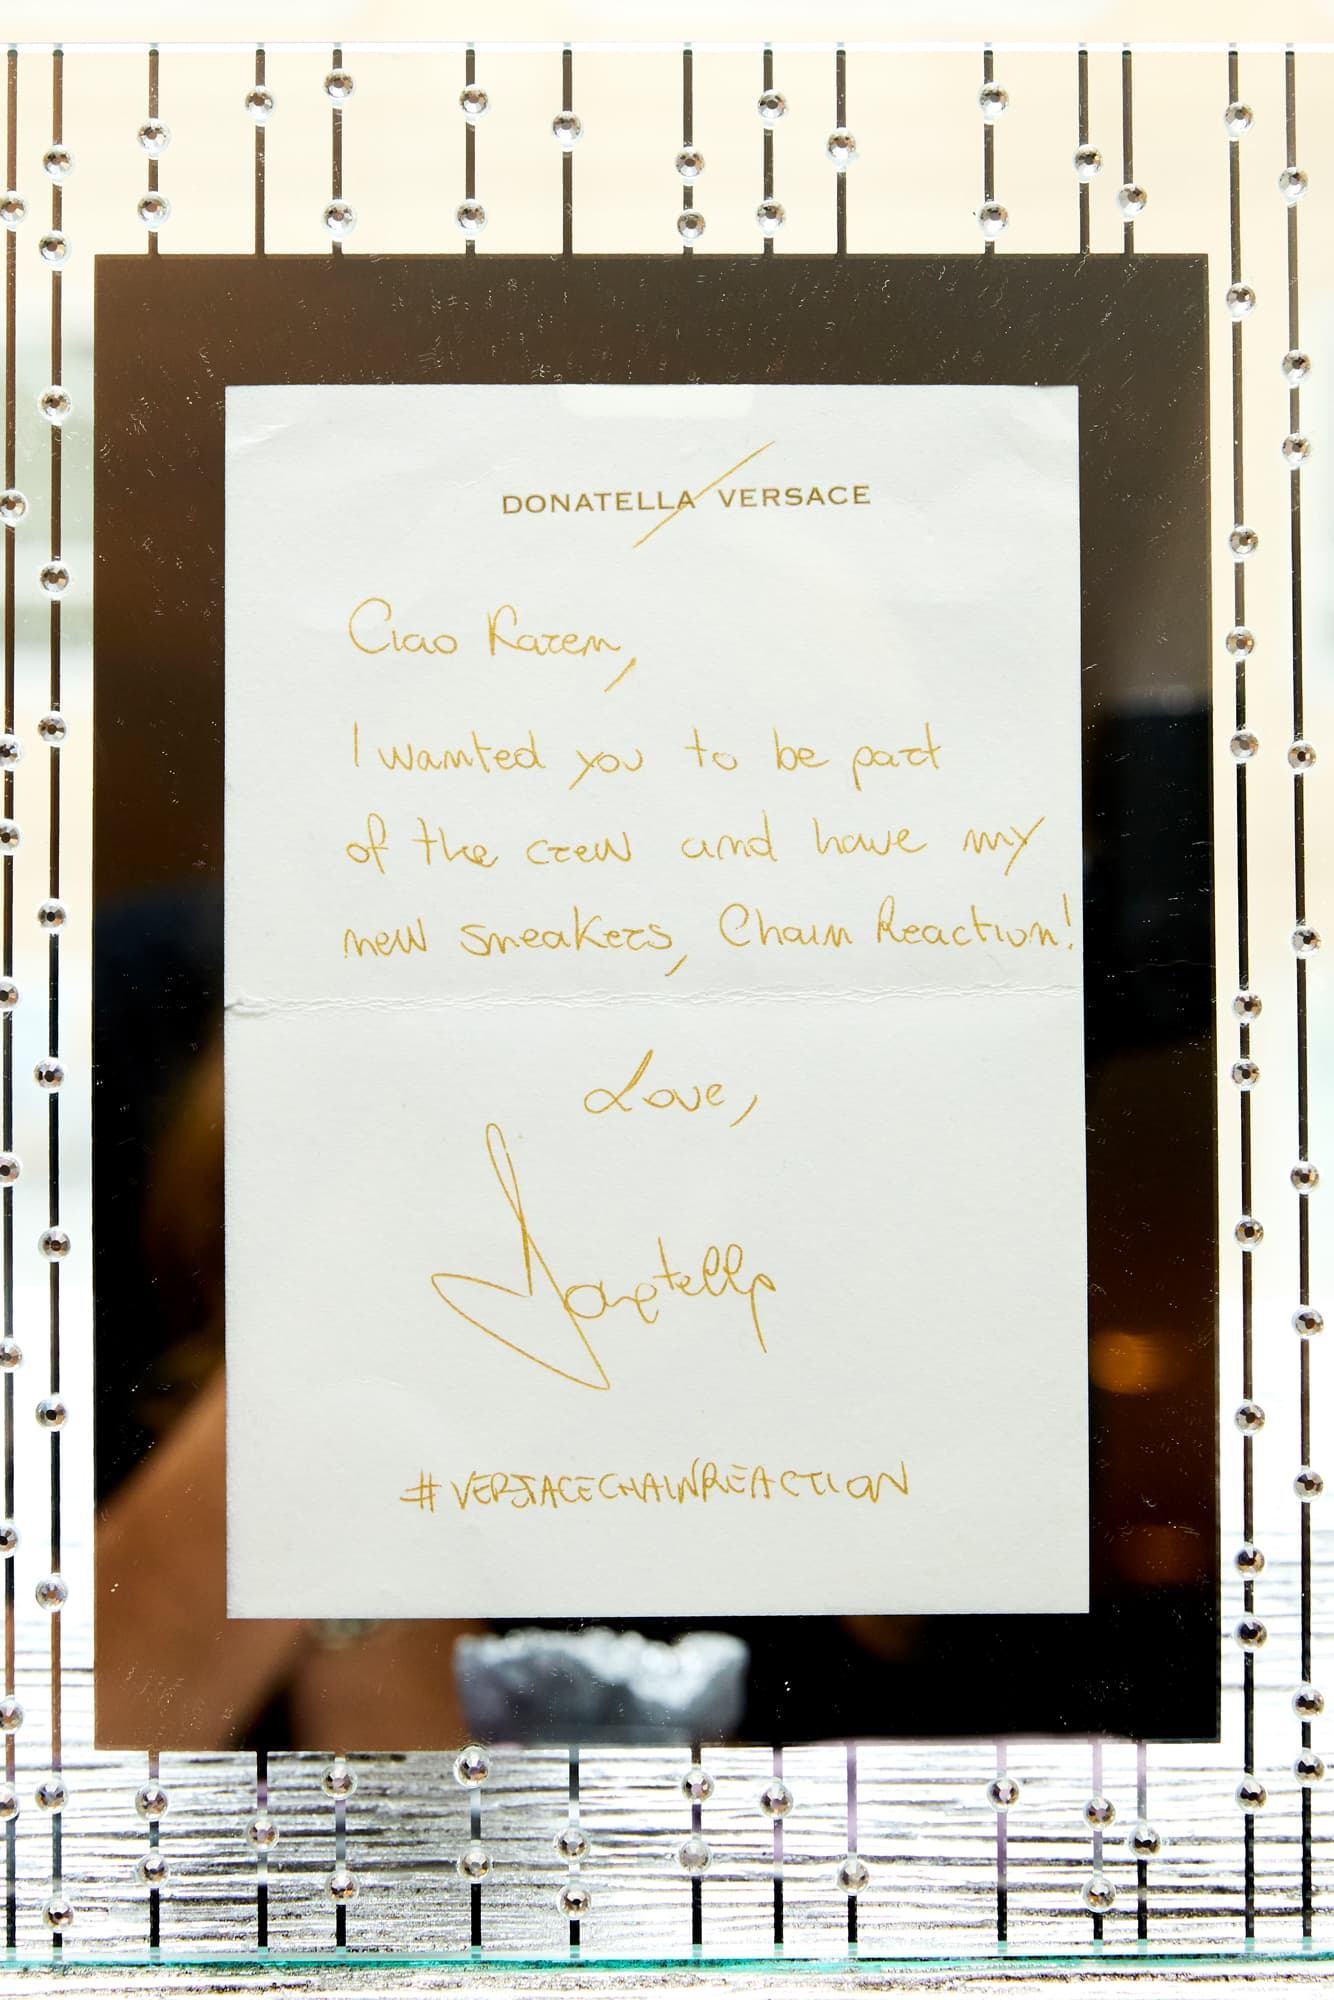 DONATELLA VERSACE
Ciao Karen,
I wanted you to be part
of the crew and have my
new sneakers, Chain Reaction!
Love,
Donatella
#VERSACECHAINREACTION